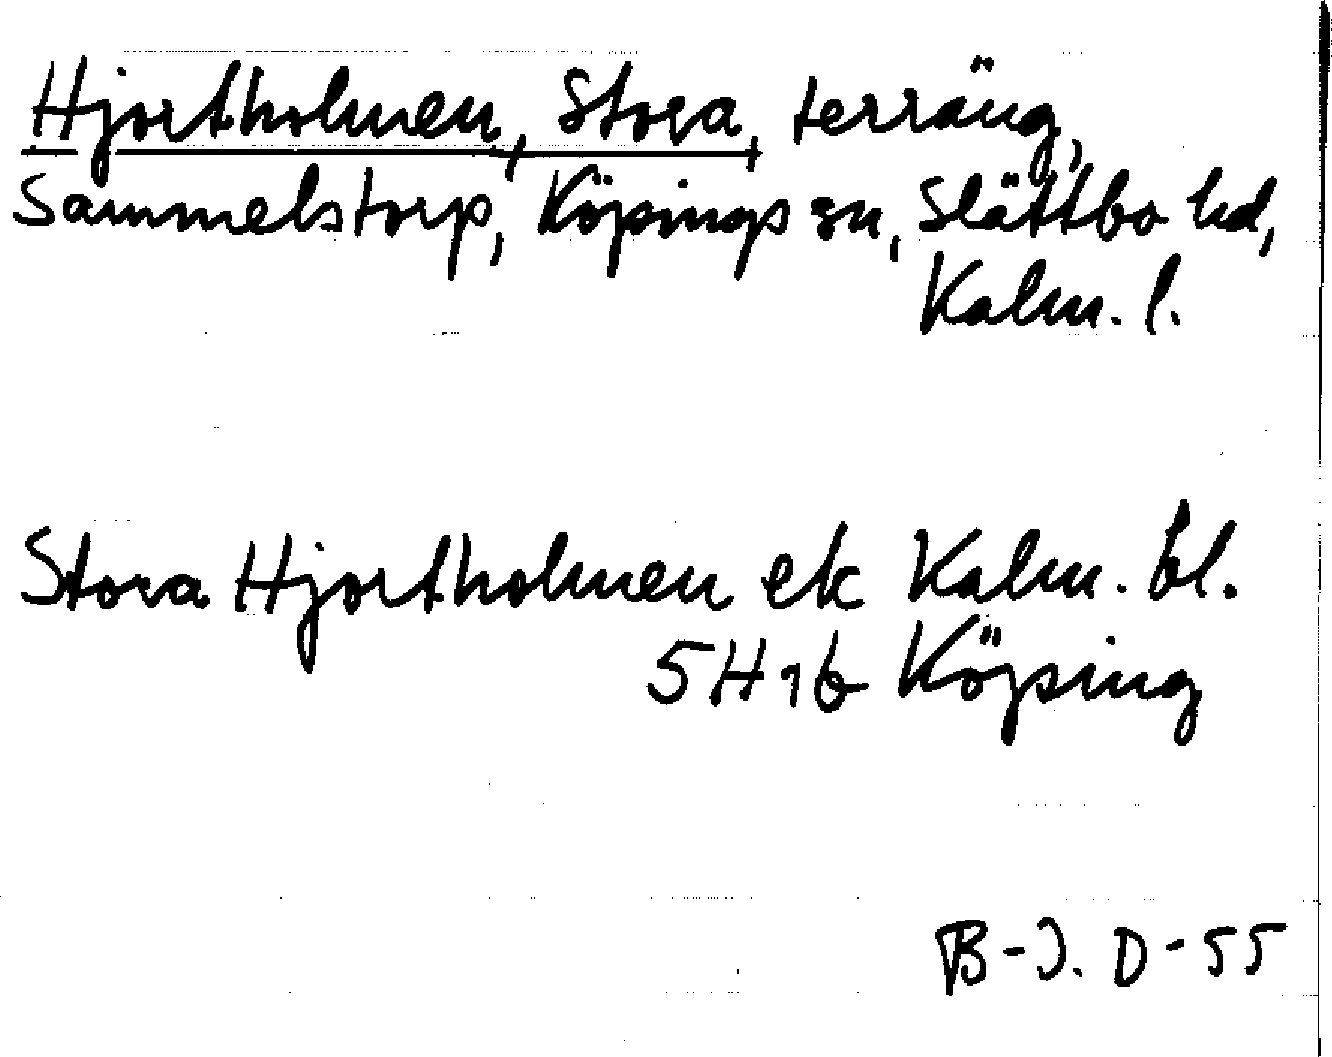 Hjortholmen, Stora, terräng,
Sammelstorp, Köpings sn, Slättbo hd,
Kalm. l.
Stora Hjortholmen ek Kalm. bl.
5H1b Köping
B-J. D-55